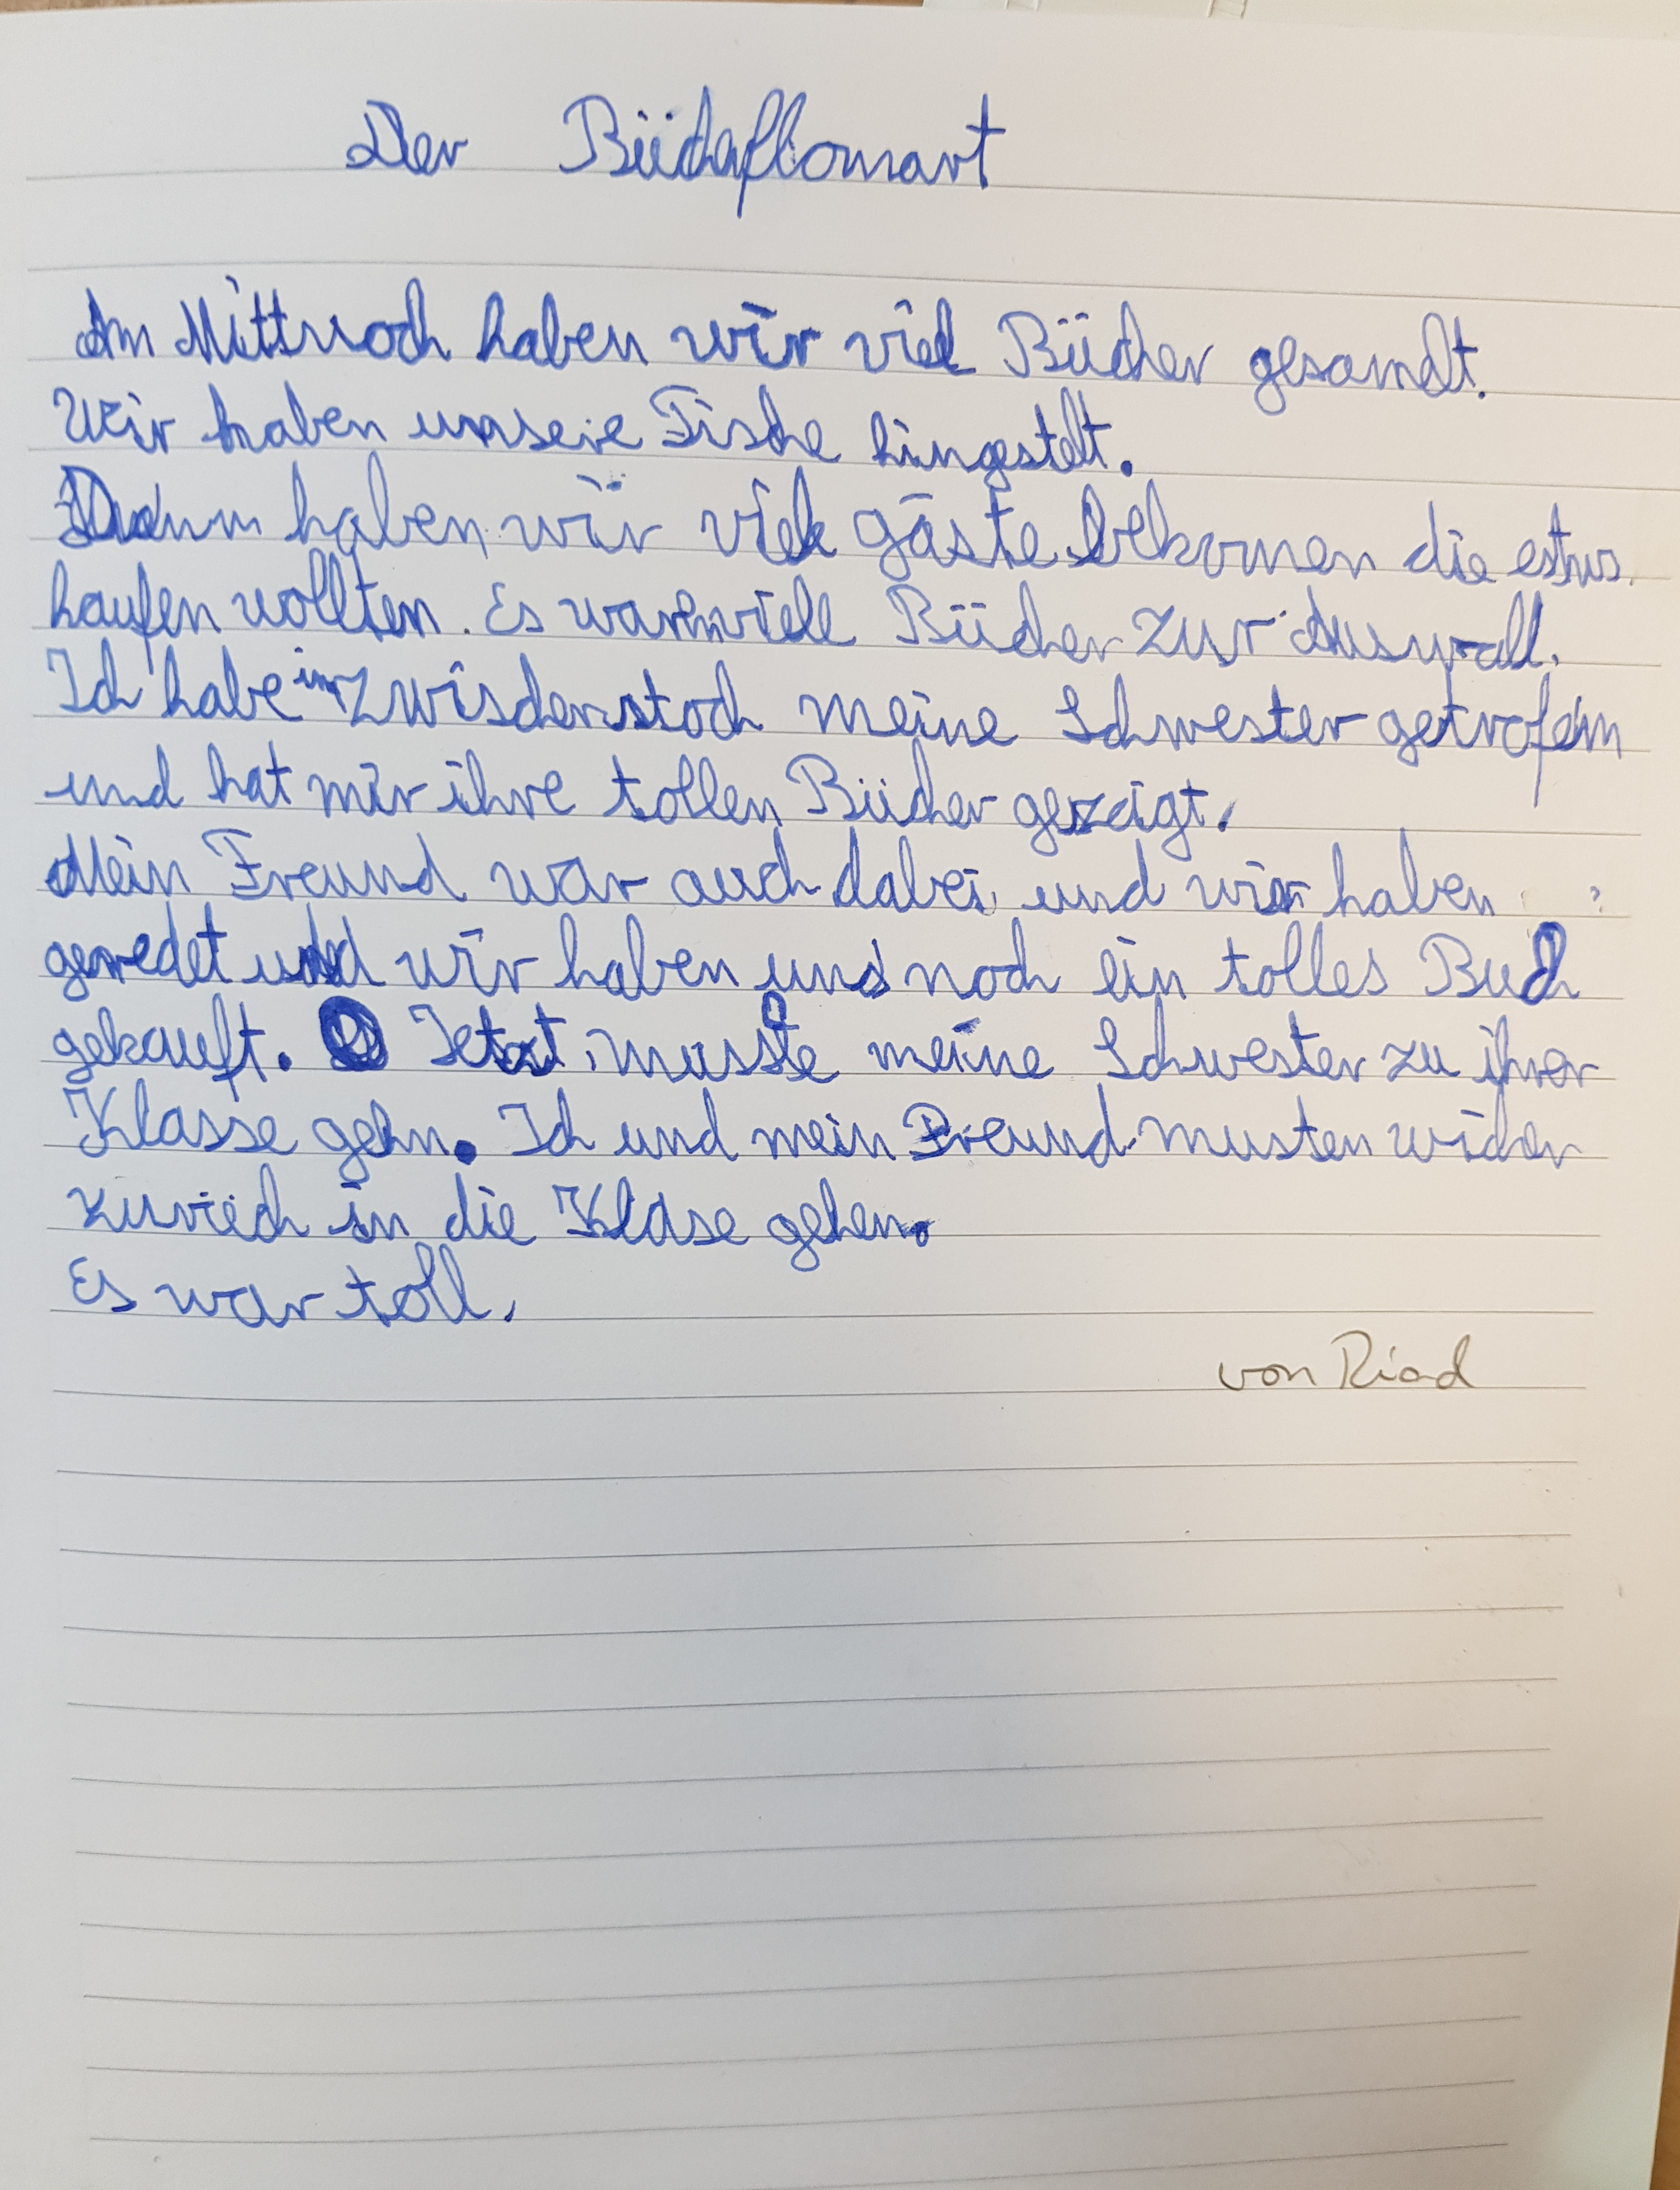 Der Büchaflomart
Am Mittwoch haben wir viel Bücher gesamdt.
Wir haben unsere Tische hingestelt.
Dann haben wir viele gäste bekomen die etwas
kaufen wollten. Es waren viele Bücher zur Auswall.
Ich habe im Zwischenstoch meine Schwester getrofen
und hat mir ihre tollen Bücher gezeigt.
Mein Freund war auch dabei und wir haben
geredet und wir haben uns noch ein tolles Buch
gekauft. Jetzt musste meine Schwester zu ihrer
Klasse gehn. Ich und mein Freund musten wider
zurück in die Klase gehen.
Es war toll.
von Riad